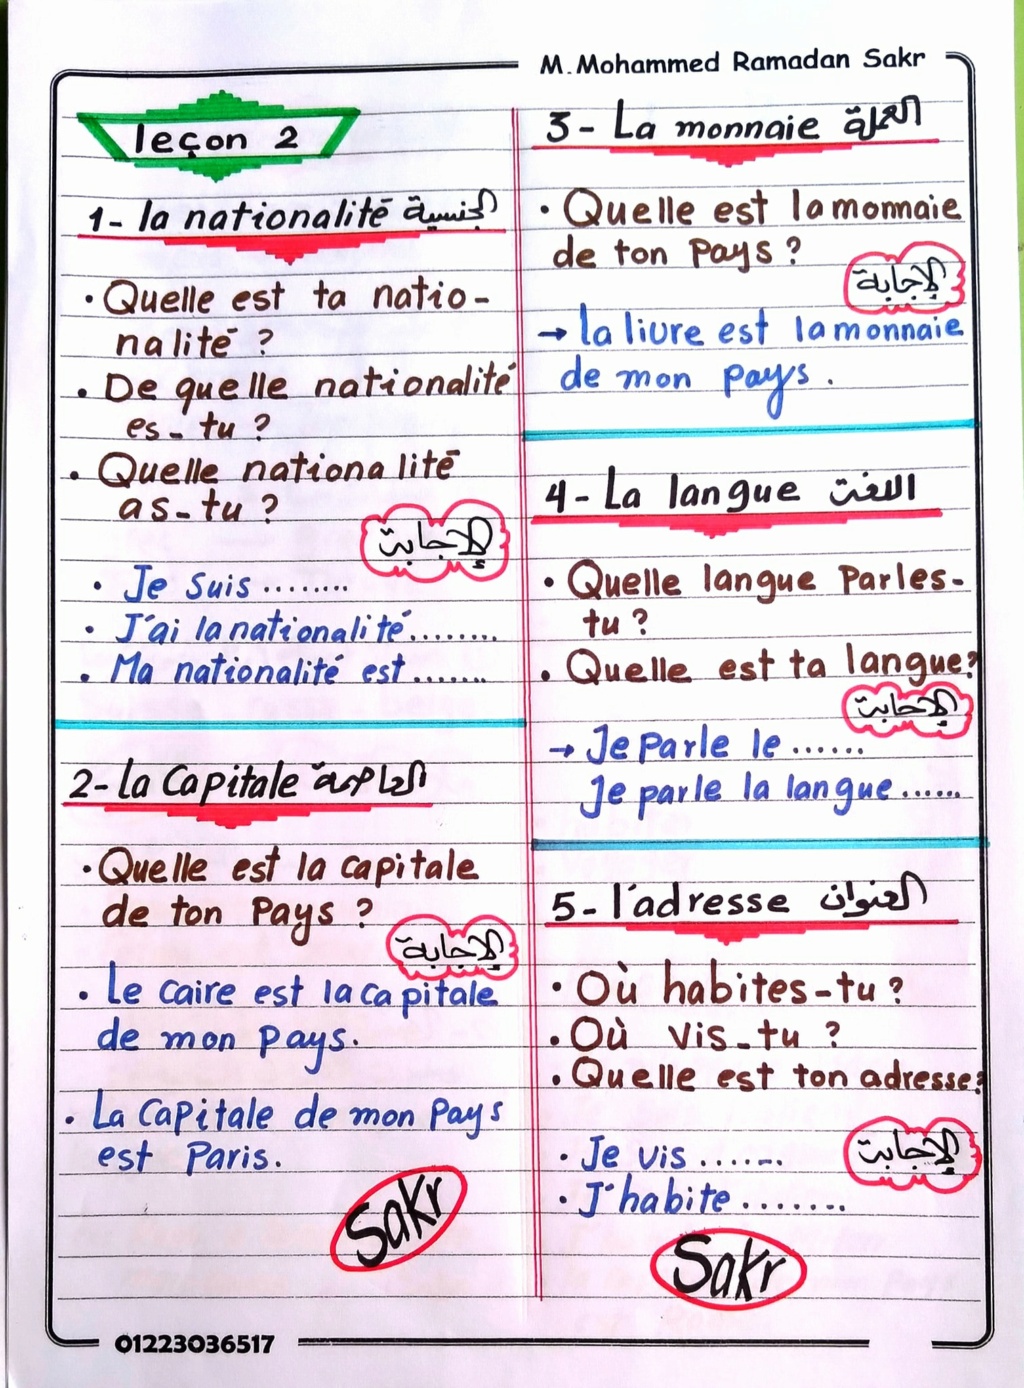 M. Mohammed Ramadan Sakr
leçon 2
1- la nationalité الجنسية
• Quelle est ta natio-
nalité ?
• De quelle nationalité
es-tu ?
• Quelle nationalité
as-tu ?
الإجابة
• Je suis ........
• J'ai la nationalité ........
• Ma nationalité est .......
2- La Capitale العاصمة
• Quelle est la capitale
de ton Pays ?
الإجابة
• Le caire est la capitale
de mon pays.
• La Capitale de mon Pays
est Paris.
Sakr
3- La monnaie العملة
• Quelle est la monnaie
de ton Pays ?
الإجابة
→ La livre est la monnaie
de mon pays.
4- La langue اللغة
• Quelle langue Parles-
tu ?
• Quelle est ta langue?
الإجابة
→ Je Parle le ......
Je parle la langue ......
5- l'adresse العنوان
• Où habites-tu ?
• Où vis-tu ?
• Quelle est ton adresse?
الإجابة
• Je vis .......
• J'habite .......
Sakr
01223036517